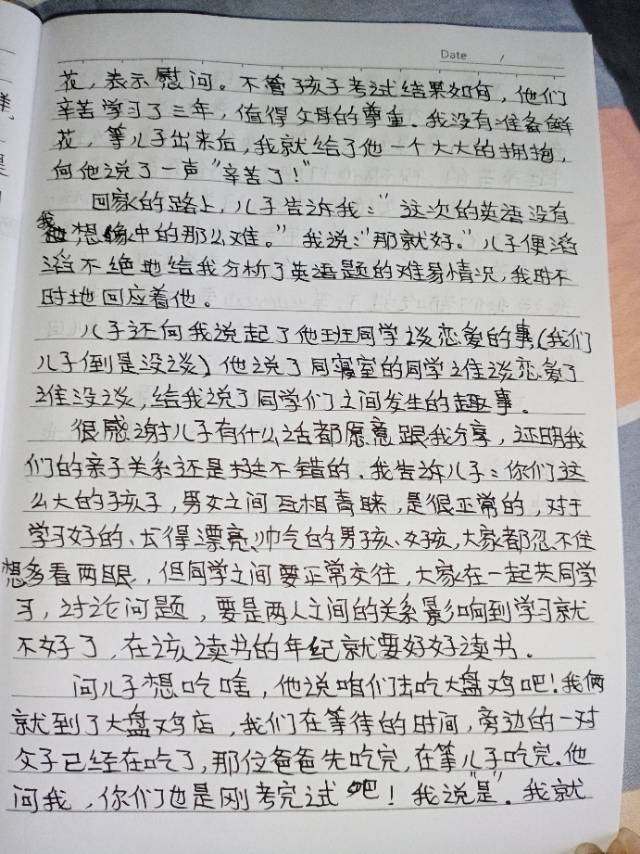 Date /
花，表示慰问。不管孩子考试结果如何，他们
辛苦学习了三年，值得父母的尊重。我没有准备鲜
花，等儿子出来后，我就给了他一个大大的拥抱，
向他说了一声“辛苦了！”
回家的路上，儿子告诉我：“这次的英语没有
我想像中的那么难。”我说：“那就好。”儿子便滔
滔不绝地给我分析了英语题的难易情况，我时不
时地回应着他。
儿子还向我说起了他班同学谈恋爱的事（我们
儿子倒是没谈）他说了同寝室的同学谁谈恋爱了
谁没谈，给我说了同学们之间发生的趣事。
很感谢儿子有什么话都愿意跟我分享，证明我
们的亲子关系还是挺不错的。我告诉儿子：你们这
么大的孩子，男女之间互相青睐，是很正常的，对于
学习好的、长得漂亮、帅气的男孩、女孩，大家都忍不住
想多看两眼，但同学之间要正常交往，大家在一起共同学
习，讨论问题，要是两人之间的关系影响到学习就
不好了，在该读书的年纪就要好好读书。
问儿子想吃啥，他说咱们去吃大盘鸡吧！我俩
就到了大盘鸡店，我们在等待的时间，旁边的一对
父子已经在吃了，那位爸爸先吃完，在等儿子吃完。他
问我，你们也是刚考完试吧！我说“是”。我就